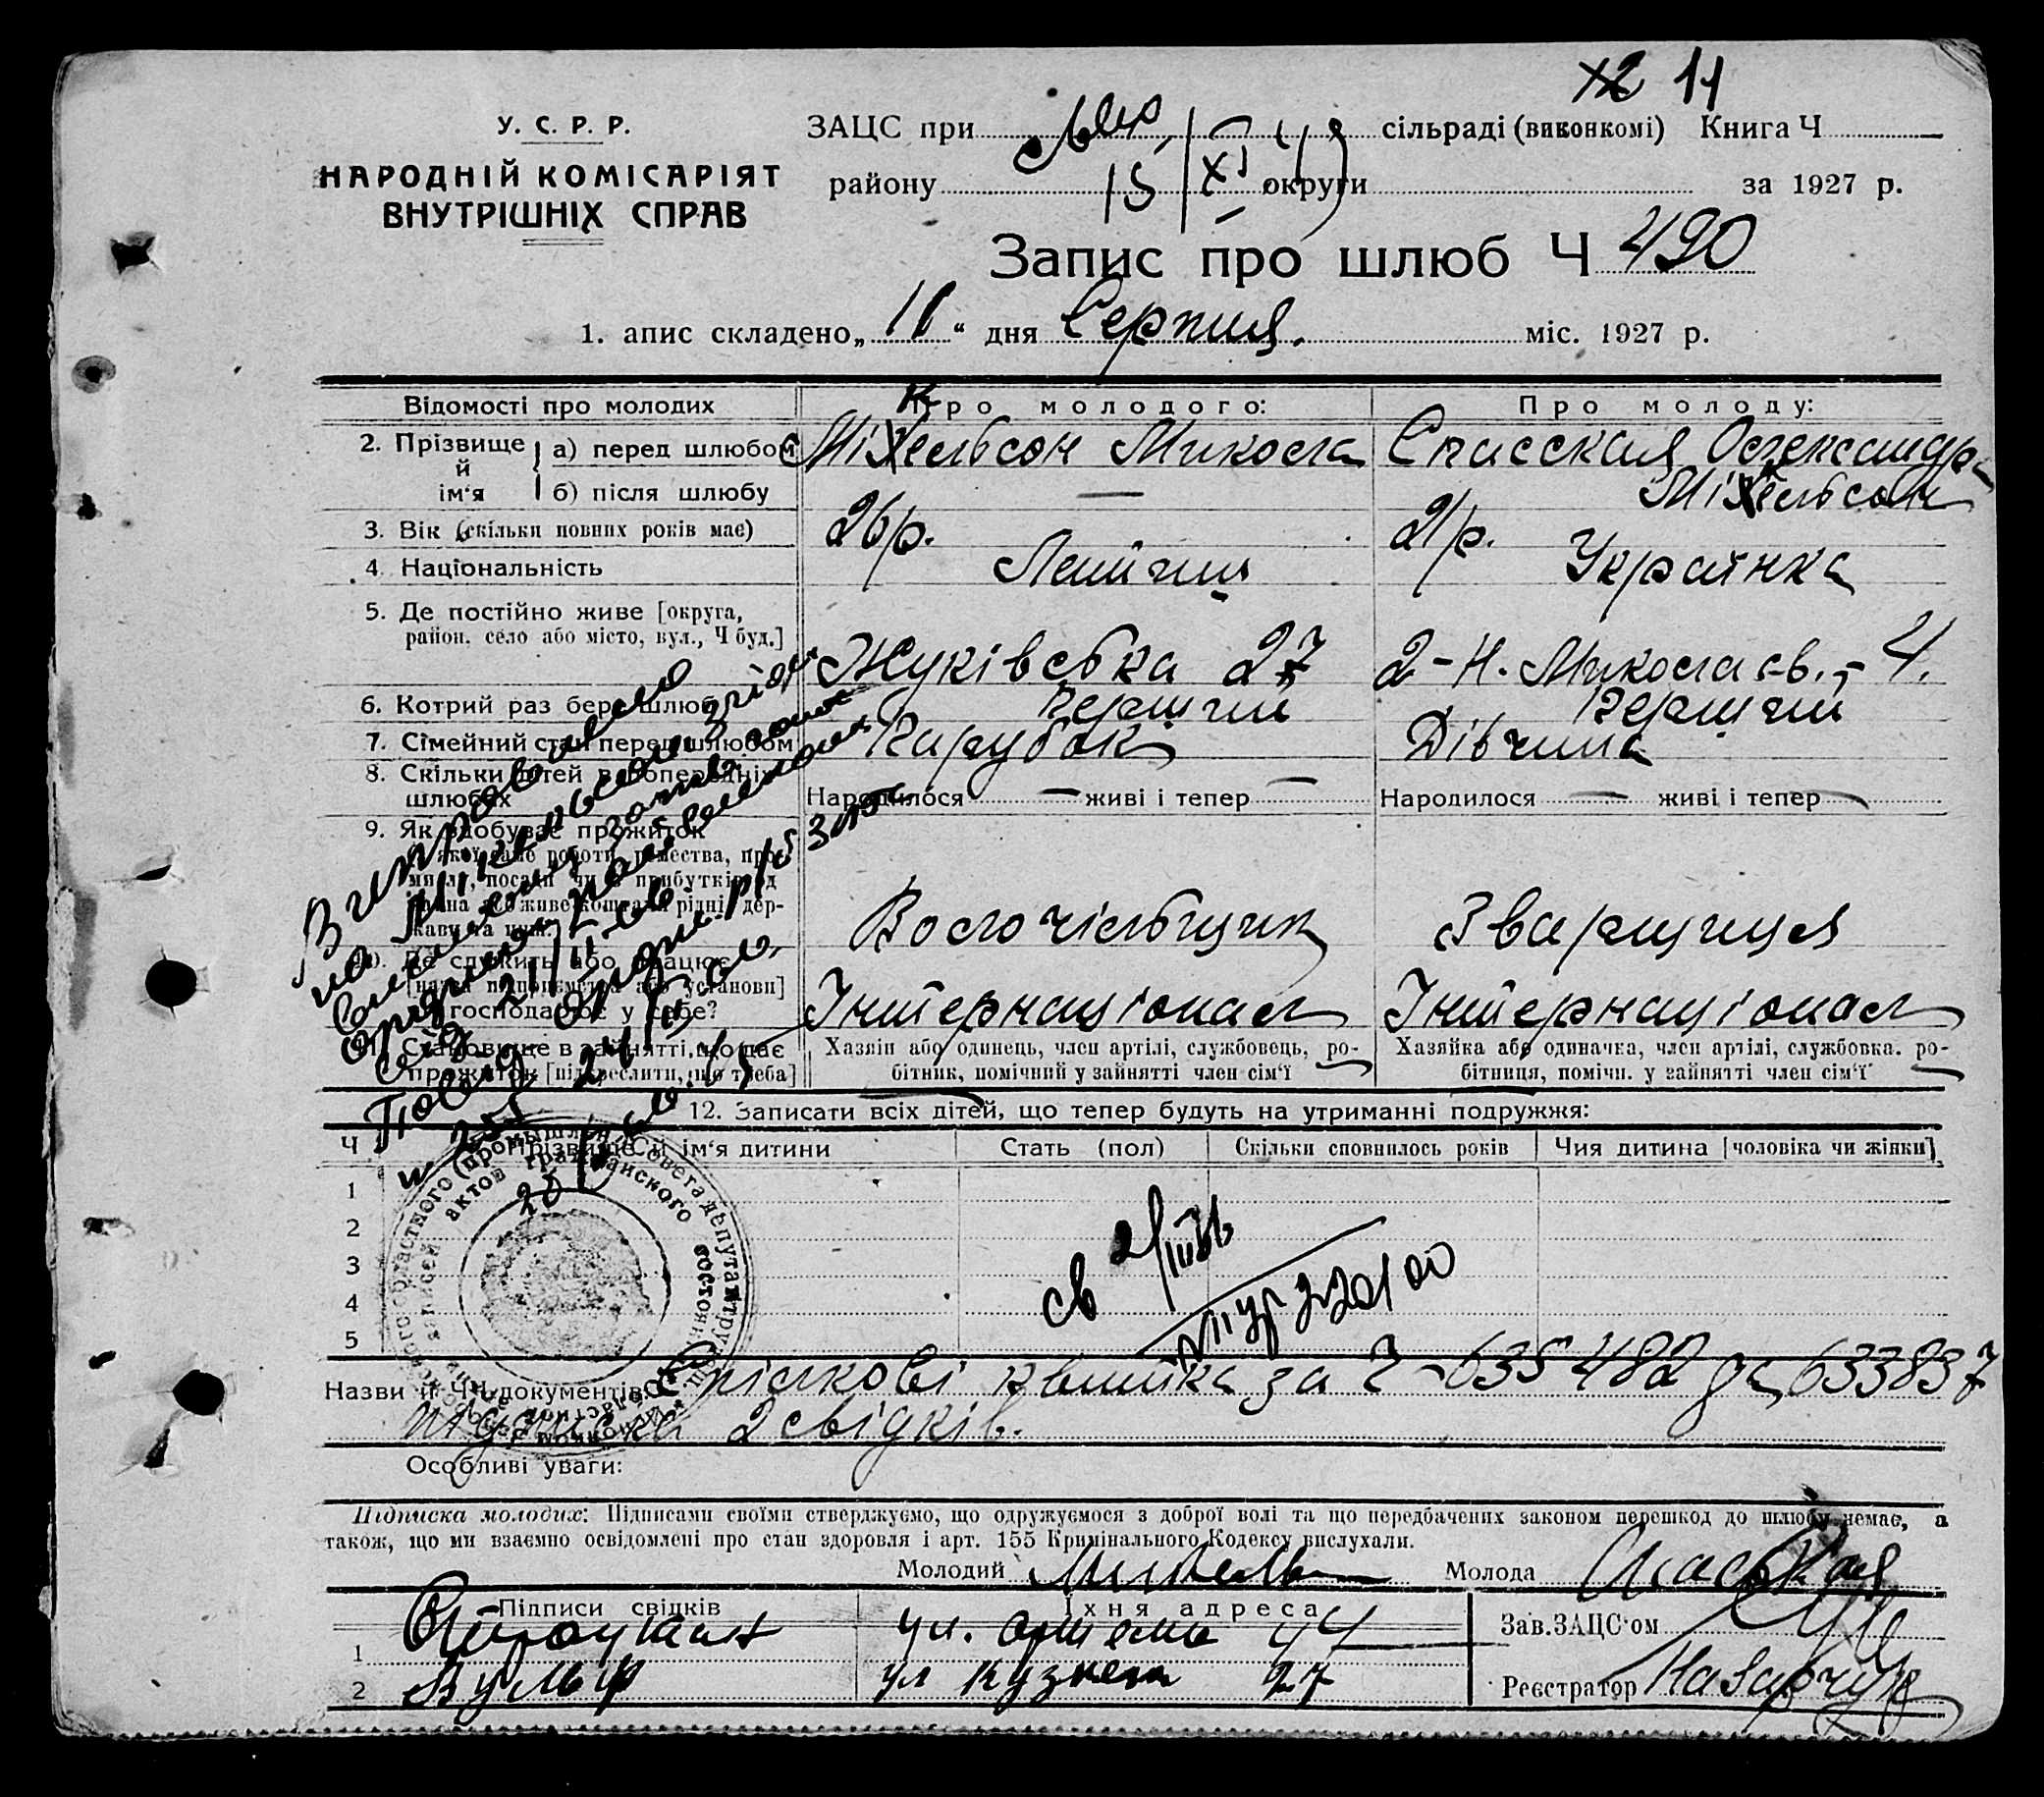 12 11
У. С. Р. Р.
НАРОДНІЙ КОМІСАРІЯТ
ВНУТРІШНІХ СПРАВ
ЗАЦС при сільраді (виконкомі) Книга Ч
району 15/XI округи за 1927 р.
Запис про шлюб Ч 490
1. апис складено „11“ дня Серпня. міс. 1927 р.
Відомості про молодих
Про молодого:
Про молоду:
2. Прізвище й ім'я
а) перед шлюбом
Міхельсон Микола
Спасская Олександра
б) після шлюбу
—
Міхельсон
3. Вік (скільки повних років має)
26 р.
21 р.
4. Національність
Українка
5. Де постійно живе [округа,
район, село або місто, вул., Ч буд.]
Жуківська 27
2-Н. Миколаєв. - 4.
6. Котрий раз бере шлюб
Першій
Першій
7. Сімейний стан перед шлюбом
Парубок
Дівчина
8. Скільки дітей в попередніх
шлюбах
Народилося — живі і тепер —
Народилося — живі і тепер —
9. Як здобуває прожиток
Волочільщик
Зварщиця
10. Де служить або працює
[назва підприємства або установи]
господарює у себе?
Інтернаціонал
Інтернаціонал
11. Становище в зайнятті, що дає
прожиток [підкреслити, що треба]
Хазяїн або одинець, член артілі, службовець, ро-
бітник, помічний у зайнятті член сім'ї
Хазяйка або одиначка, член артілі, службовка. ро-
бітниця, помічн. у зайнятті член сім'ї
Виправлено
на Міхельсон згідно
12. Записати всіх дітей, що тепер будуть на утриманні подружжя:
Ч
Прізвище й ім'я дитини
Стать (пол)
Скільки сповнилось років
Чия дитина [чоловіка чи жінки]
1
2
3
4
5
записей актов гражданского состояния
св 2/III 36
Назви й ЧЧ документів: Спілкові квитка за Ч - 635482 та 633837
підписка 2 свідків.
Особливі уваги:
Підписка молодих: Підписами своїми стверджуємо, що одружуємося з доброї волі та що передбачених законом перешкод до шлюбу немає, а
також, що ми взаємно освідомлені про стан здоровля і арт. 155 Кримінального Кодексу вислухали.
Молодий
Молода Спасская
Підписи свідків
Їхня адреса
1 ул. Артема 44
2 Вульф ул Кузнечн 27
Зав.ЗАЦС'ом
Реєстратор Назарчук